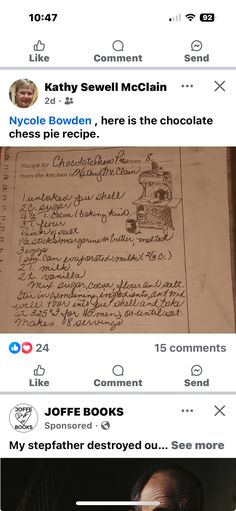 10:47
92
Like
Comment
Send
Kathy Sewell McClain
2d
Nycole Bowden , here is the chocolate
chess pie recipe.
Recipe for Chocolate Chess Pie Serves 8
from the kitchen of Kathy McClain
1 unbaked pie shell
2 C. sugar
4½ T. cocoa (baking kind)
3 T. flour
Pinch of salt
½ stick margarine or butter, melted
3 eggs
1 sm. can evaporated milk (⅔ c.)
2 T. milk
2 t. vanilla
Mix sugar, cocoa, flour and salt.
Stir in remaining ingredients and mix
well. Pour into pie shell and bake
at 325° for 40 min, or until set.
Makes 8 servings
24
15 comments
Like
Comment
Send
JOFFE
BOOKS
JOFFE BOOKS
Sponsored
My stepfather destroyed ou... See more